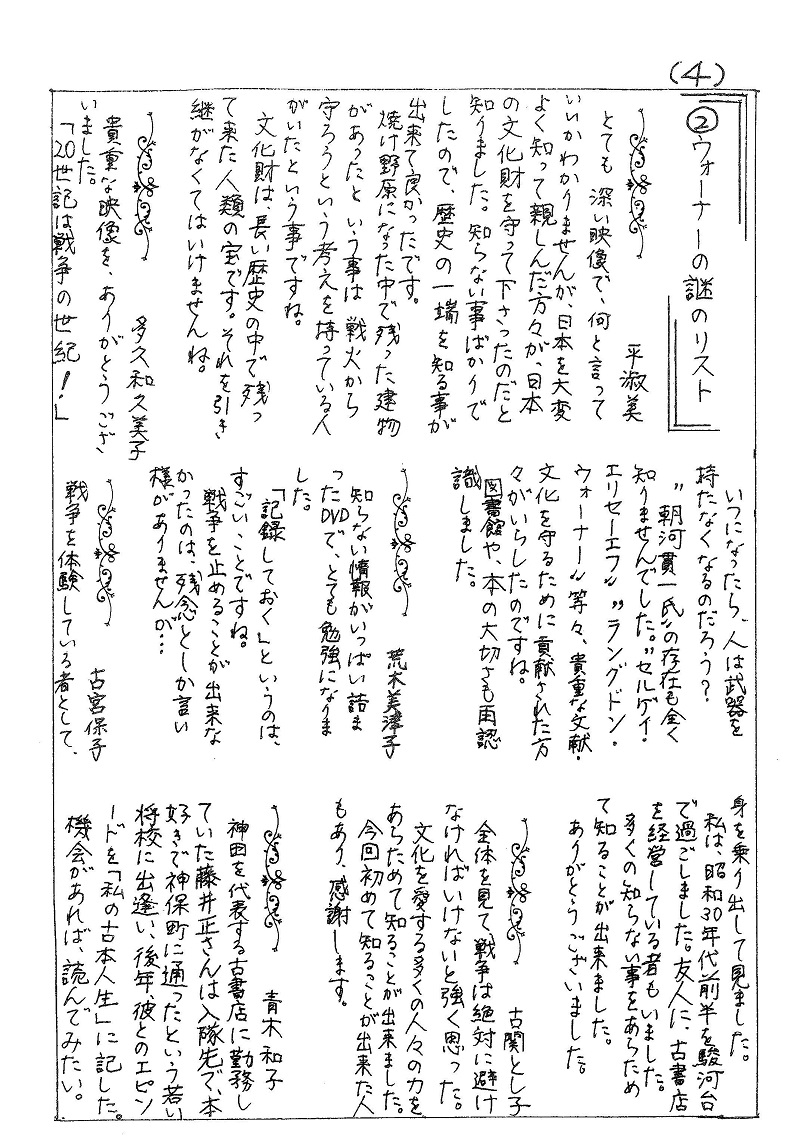 (4)
②ウォーナーの謎のリスト
平淑美
とても 深い映像で、何と言って
いいかわかりませんが、日本を大変
よく知って親しんだ方々が、日本
の文化財を守って下さったのだと
知りました。知らない事ばかりで
したので、歴史の一端を知る事が
出来て良かったです。
焼け野原になった中で残った建物
があったという事は 戦火から
守ろうという考えを持っている人
がいたという事ですね。
文化財は、長い歴史の中で残っ
て来た人類の宝です。それを引き
継がなくてはいけませんね。
多久和久美子
貴重な映像を、ありがとうござ
いました。
「20世記は戦争の世紀!」
いつになったら、人は武器を
持たなくなるのだろう?
〝朝河貫一氏〟の存在も全く
知りませんでした。〝セルゲイ・
エリセーエフ〟〝ラングドン・
ウォーナー〟等々、貴重な文献・
文化を守るために貢献された方
々がいらしたのですね。
図書館や、本の大切さも再認
識しました。
荒木美津子
知らない情報がいっぱい詰ま
ったDVDで、とても勉強になりま
した。
「記録しておく」というのは、
すごいことですね。
戦争を止めることが出来な
かったのは、残念としか言い
様がありませんが…
古宮保子
戦争を体験している者として、
身を乗り出して見ました。
私は、昭和30年代前半を駿河台
で過ごしました。友人に、古書店
を経営している者もいました。
多くの知らない事をあらため
て知ることが出来ました。
ありがとうございました。
古関とし子
全体を見て、戦争は絶対に避け
なければいけないと強く思った。
文化を愛する多くの人々の力を
あらためて知ることが出来ました。
今回初めて知ることが出来た人
もあり、感謝します。
青木和子
神田を代表する古書店に勤務し
ていた藤井正さんは入隊先で、本
好きで神保町に通ったという若い
将校に出逢い、後年、彼とのエピソ
ードを「私の古本人生」に記した。
機会があれば、読んでみたい。